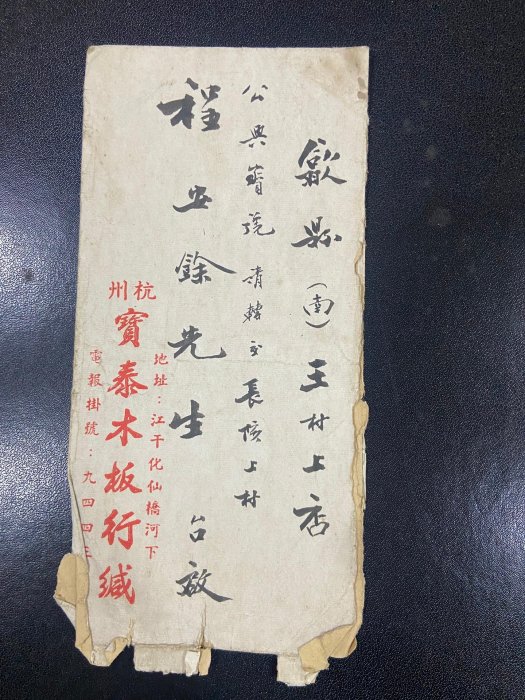 歙縣(南)王村上店
公興寶號請轉交長陔上村
程安餘先生台啟
地址:江干化仙橋河下
杭州
寶泰木板行緘
電報掛號:九四四三